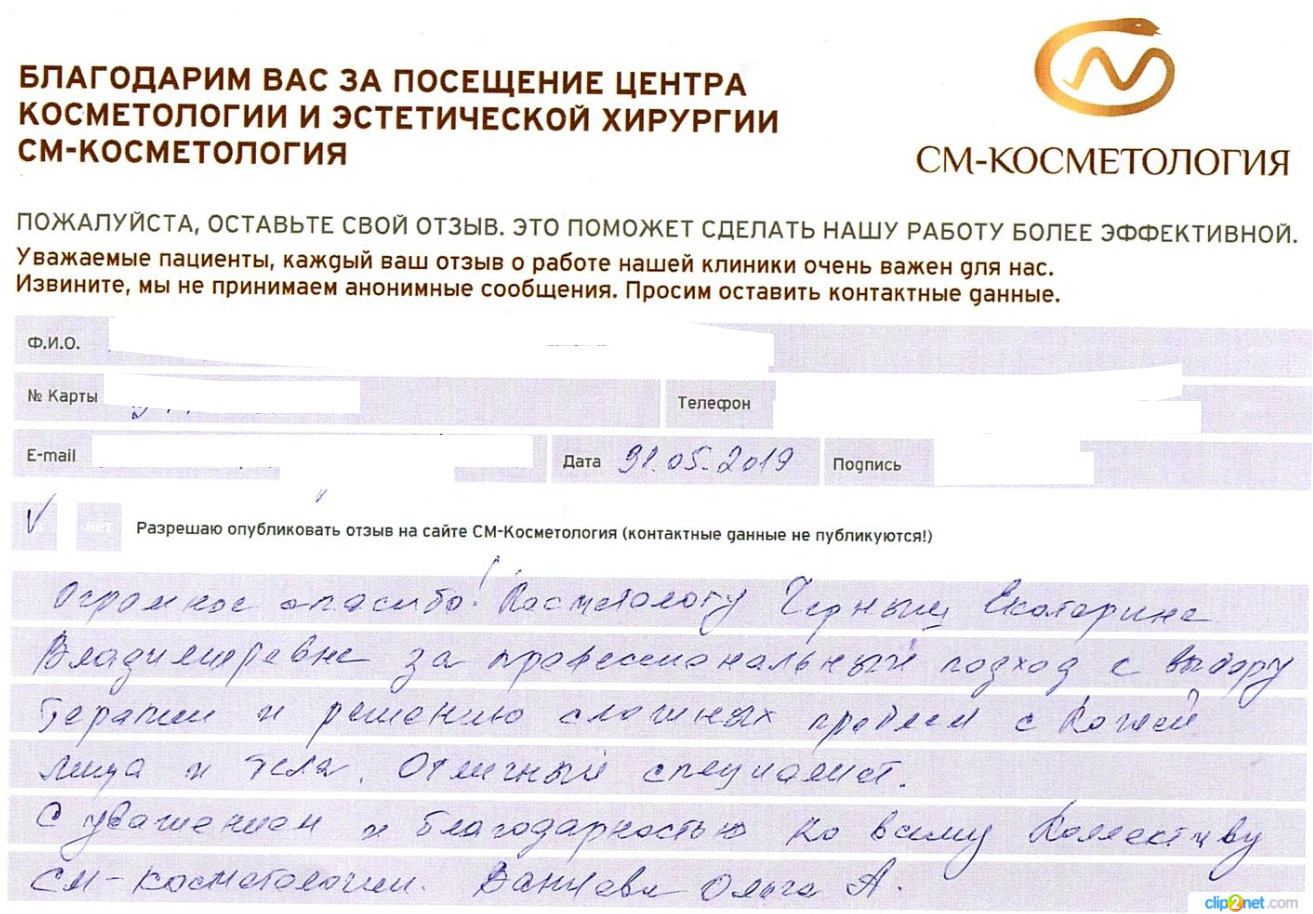 БЛАГОДАРИМ ВАС ЗА ПОСЕЩЕНИЕ ЦЕНТРА
КОСМЕТОЛОГИИ И ЭСТЕТИЧЕСКОЙ ХИРУРГИИ
СМ-КОСМЕТОЛОГИЯ
СМ-КОСМЕТОЛОГИЯ
ПОЖАЛУЙСТА, ОСТАВЬТЕ СВОЙ ОТЗЫВ. ЭТО ПОМОЖЕТ СДЕЛАТЬ НАШУ РАБОТУ БОЛЕЕ ЭФФЕКТИВНОЙ.
Уважаемые пациенты, каждый ваш отзыв о работе нашей клиники очень важен для нас.
Извините, мы не принимаем анонимные сообщения. Просим оставить контактные данные.
Ф.И.О.
№ Карты Телефон
E-mail Дата 31.05.2019 Подпись
нет Разрешаю опубликовать отзыв на сайте СМ-Косметология (контактные данные не публикуются!)
Огромное спасибо! Косметологу Черныш Екатерине
Владимировне за профессиональный подход к выбору
терапии и решению сложных проблем с кожей
лица и тела. Отличный специалист.
С уважением и благодарностью ко всему Коллективу
СМ-косметологии. Ольга А.
clip2net.com